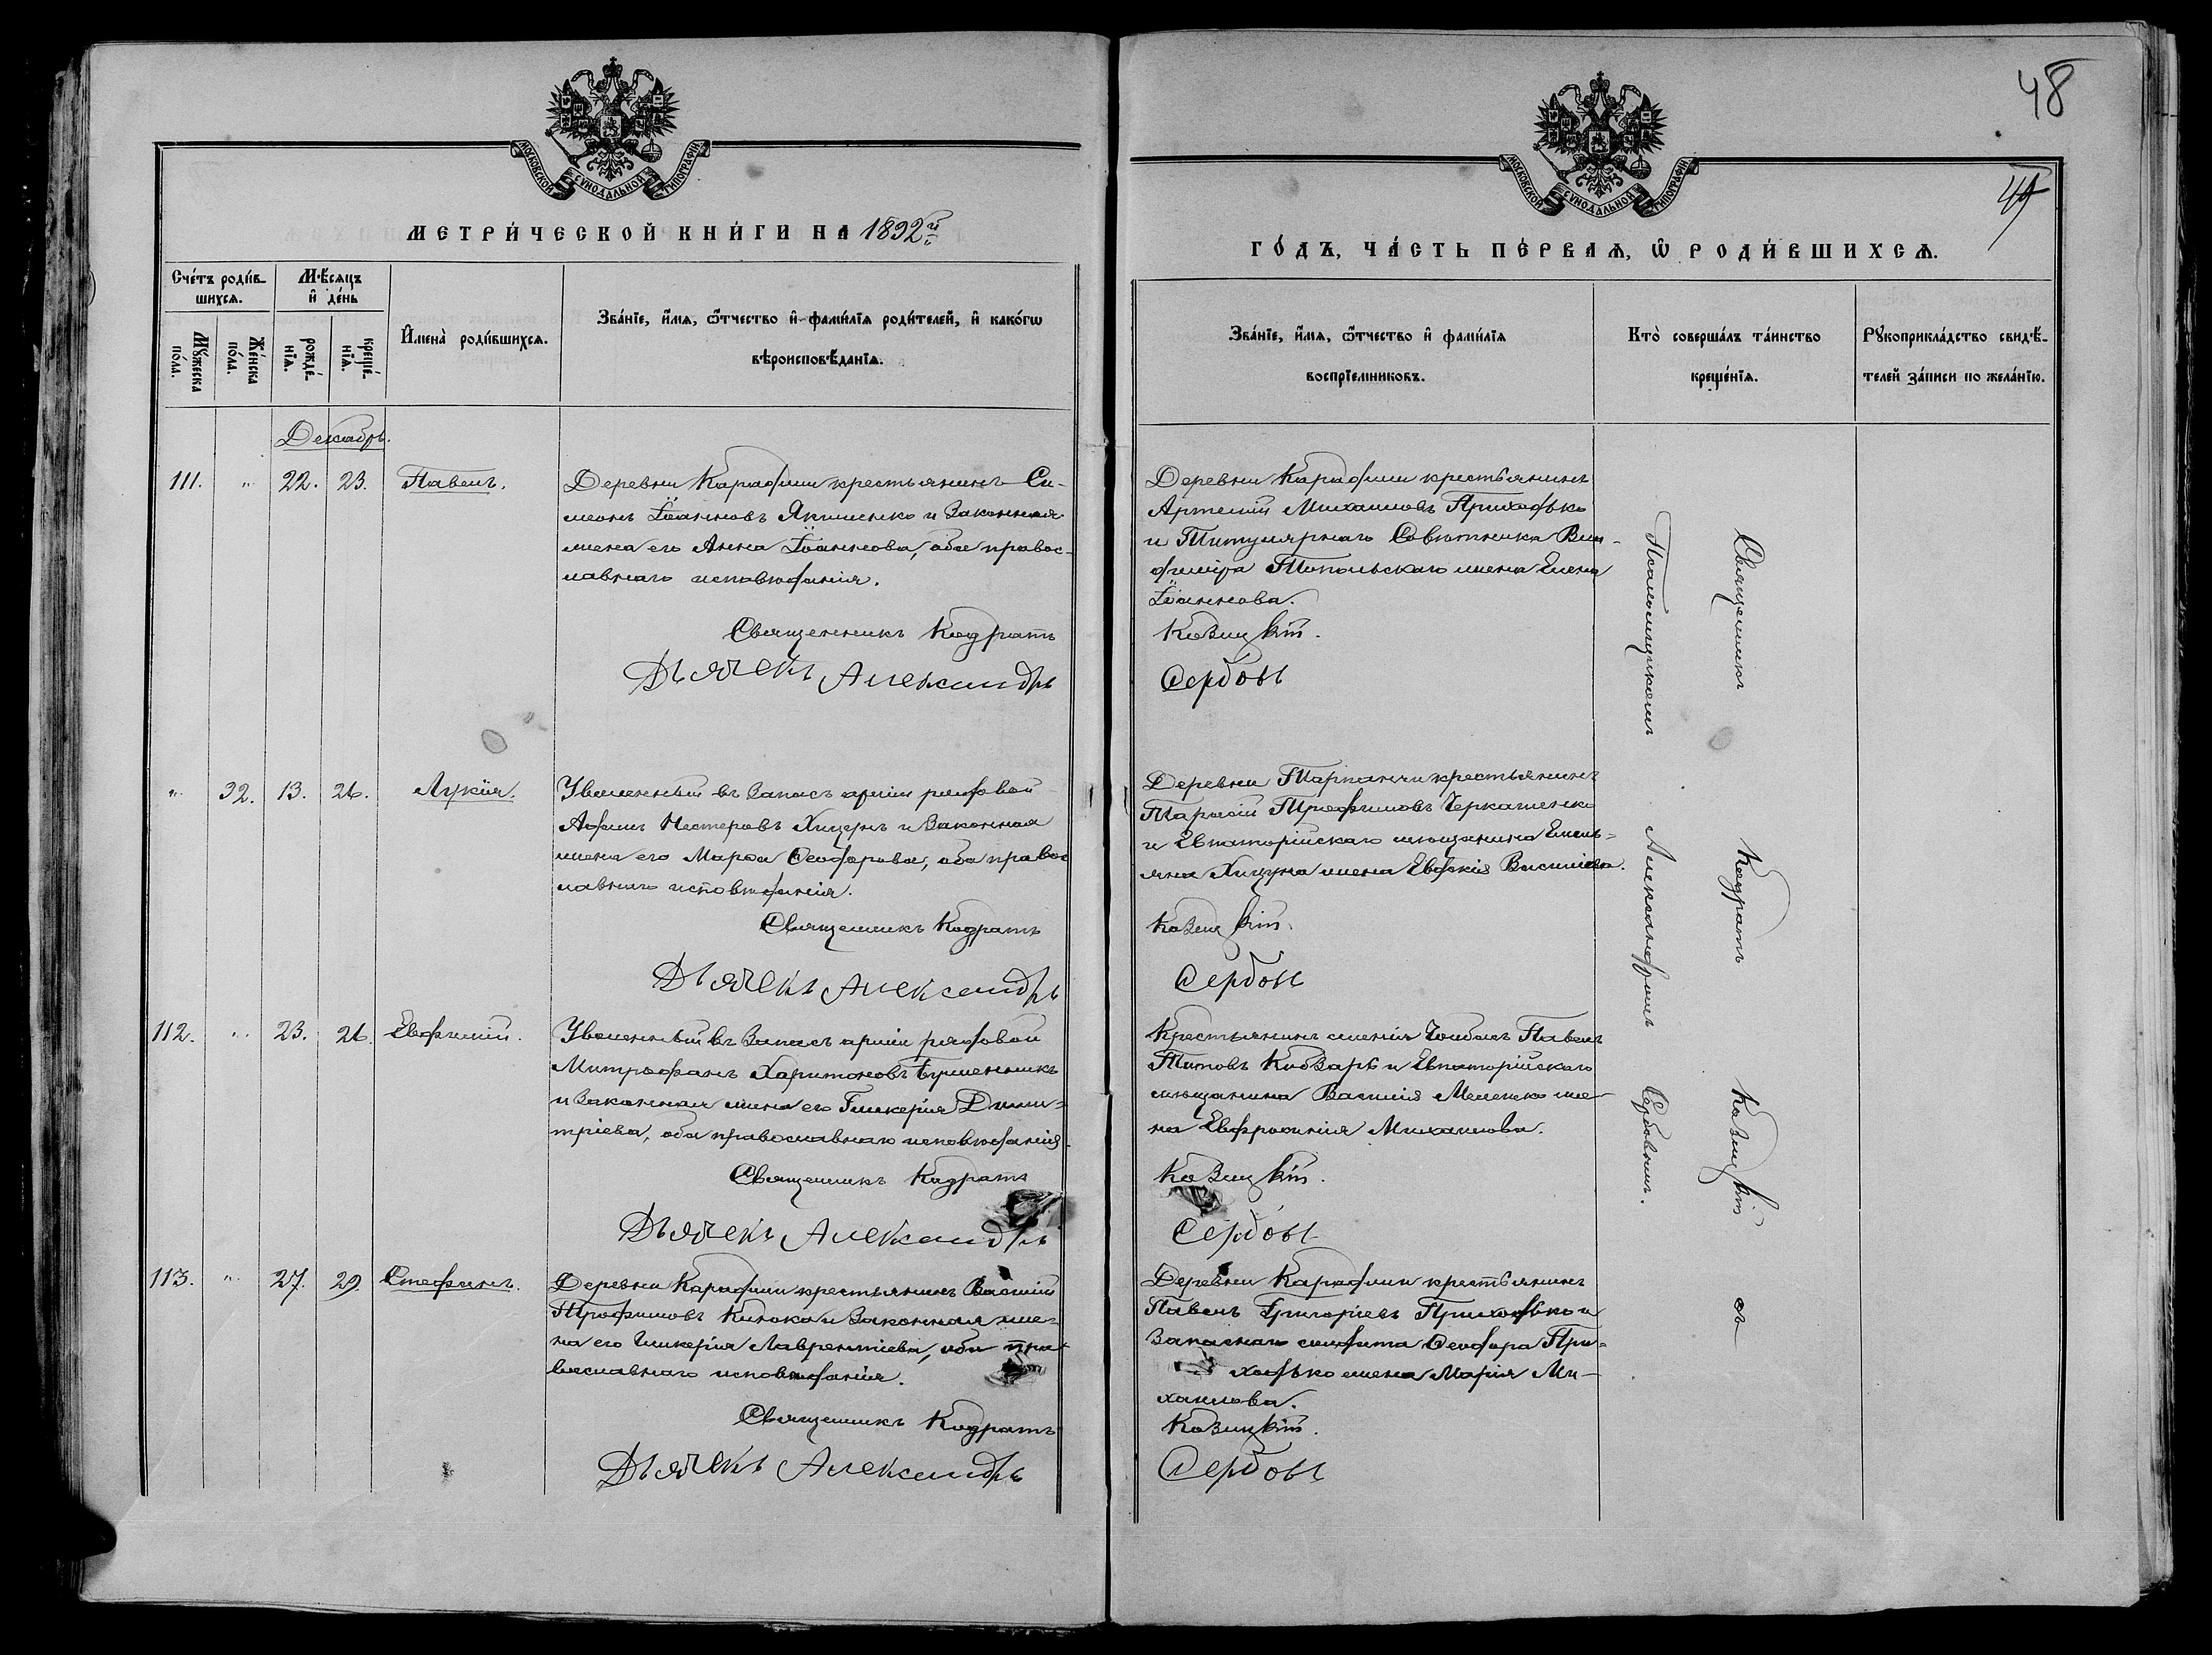 48
49
МОСКОВСКОЙ СУНОДАЛЬНОЙ ТИПОГРАФІИ
МОСКОВСКОЙ СУНОДАЛЬНОЙ ТИПОГРАФІИ
МЕТРИ́ЧЕСКОЙ КНИ́ГИ НА 1892 й
ГО́ДЪ, ЧА́СТЬ ПЕ́РВАѦ, Ѡ РОДИ́ВШИХСѦ.
Сче́тъ роди́в-
шихсѧ.
Мꙋ́жеска
по́ла.
Же́нска
по́ла.
Мѣ́сѧцъ
и҆ де́нь
рожде́-
нїѧ.
креще́-
нїѧ.
И҆мена̀ роди́вшихсѧ.
Зва́нїе, и҆́мѧ, ѻ҆́тчество и҆ фами́лїѧ роди́телей, и҆ како́гѡ
вѣроисповѣ́данїѧ.
Зва́нїе, и҆́мѧ, ѻ҆́тчество и҆ фами́лїѧ
воспрїе́мниковъ.
Кто̀ соверша́лъ та́инство
креще́нїѧ.
Рꙋкоприкла́дство свидѣ́-
телей за́писи по жела́нїю.
Декабрь.
111. " 22. 23. Павелъ.
Деревни Караджи крестьянинъ Си-
меонъ Іоанновъ Якименко и законная
жена его Анна Іоаннова, оба правос-
лавнаго исповѣданія.
Священникъ Кодратъ
Дьячекъ Александръ
Деревни Караджи крестьянинъ
Артемій Михаиловъ Приходько
и Титулярнаго Совѣтника Вла-
диміра Топольскаго жена Елена
Іоаннова.
Козицкій.
Сербовъ
" 32. 13. 26. Лукія.
Уволенный въ запасъ арміи рядовой
Нестеровъ Хицунъ и законная
жена его Марѳа Ѳеодорова, оба правос
лавнаго исповѣданія.
Священникъ Кодратъ
Дьячекъ Александръ
Деревни Тарпанчи крестьянинъ
Тарасій Трофимовъ Черкашенко
и Евпаторійскаго мѣщанина Емель-
яна Хицуна жена Евдокія Василіева.
Козицкій.
Сербовъ
112. " 23. 26. Евфимій.
Уволенный въ запасъ арміи рядовой
Митрофанъ Харитоновъ
и законная жена его Гликерія Дими-
тріева, оба православнаго исповѣданія.
Священникъ Кодратъ
Дьячекъ Александръ
Крестьянинъ имѣнія Павелъ
Титовъ Кобзарь и Евпаторійскаго
мѣщанина Василія Меленко же-
на Евфросинія Михаилова.
Козицкій.
Сербовъ
113. " 27. 29. Стефанъ.
Деревни Караджи крестьянинъ Василій
Трофимовъ и законная же-
на его Гликерія Лаврентіева, оба пра-
вославнаго исповѣданія.
Священникъ Кодратъ
Дьячекъ Александръ
Деревни Караджи крестьянинъ
Павелъ Григоріевъ Приходько и
запаснаго солдата Ѳеодора При-
ходько жена Марія Ми-
хаилова.
Козицкій.
Сербовъ
Священникъ Кодратъ Козицкій съ
Псаломщикомъ Александромъ Сербовымъ.